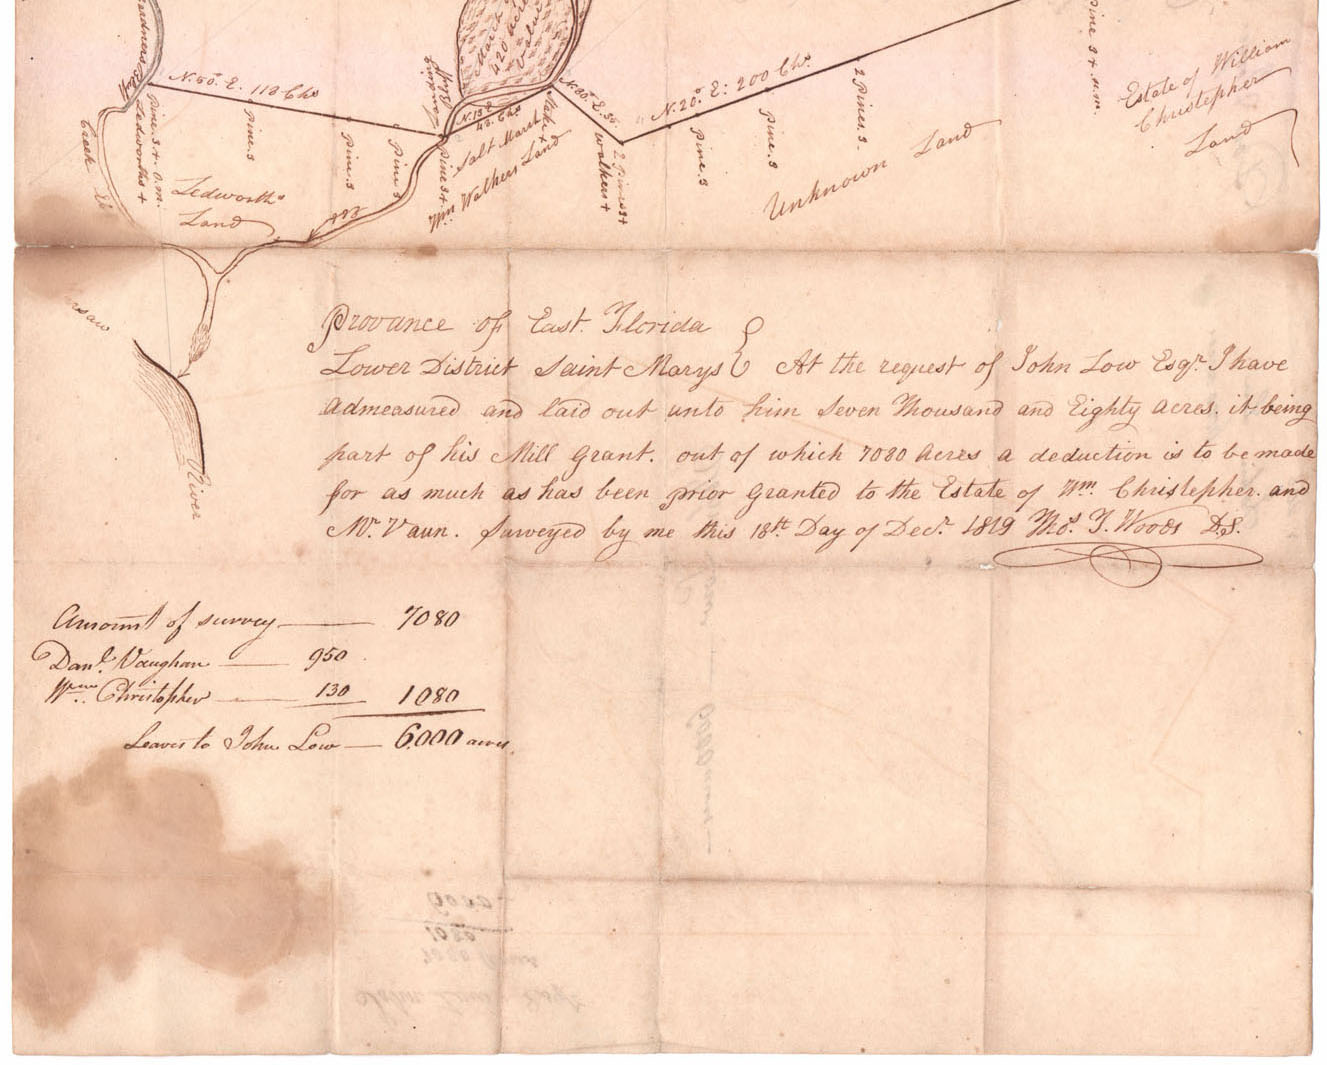 Gardners
Marsh
420 acre
Value
N. 50° E. 118 Chs
N. 15 E
43. Chs
N. 20° E: 200 Chs.
Landing
Pine S + O.M.
Ledworths +
Pine. S
Pine. S
Pine S
Pine S +
Salt Marsh
Wm. Walkers Land
Stake x
Walkers +
2 Pines +
Pine. S
Pine. S
2 Pines. S.
Pine S + M.M.
Unknown Land
Estate of William
Christepher
Land
Creek
Ledworths
Land
River
Provance of East. Florida
Lower District Saint Marys } At the request of John Low Esqr. I have
admeasured and laid out unto him Seven Thousand and Eighty Acres. it being
part of his Mill Grant. out of which 7080 Acres a deduction is to be made
for as much as has been prior Granted to the Estate of Wm. Christepher. and
Mr. Vaun. Surveyed by me this 18st. Day of Decr. 1819 Thos. T. Woods D.S.
Amount of survey — 7080
Danl. Vaughan — 950
Wm. Christopher — 130 1080
Leaves to John Low — 6.000 acres.